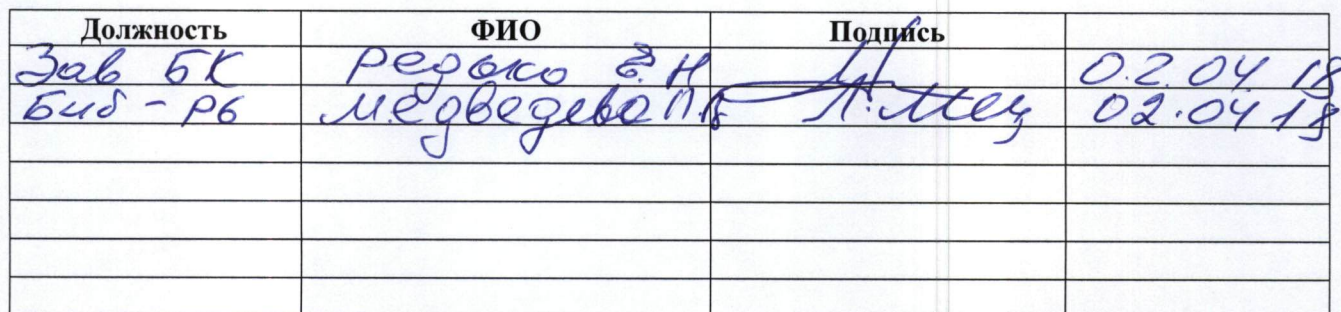 Должность ФИО Подпись
Зав БК Редько Е.Н 02.04 18
Биб-рь Медведева Л. 02.04 18